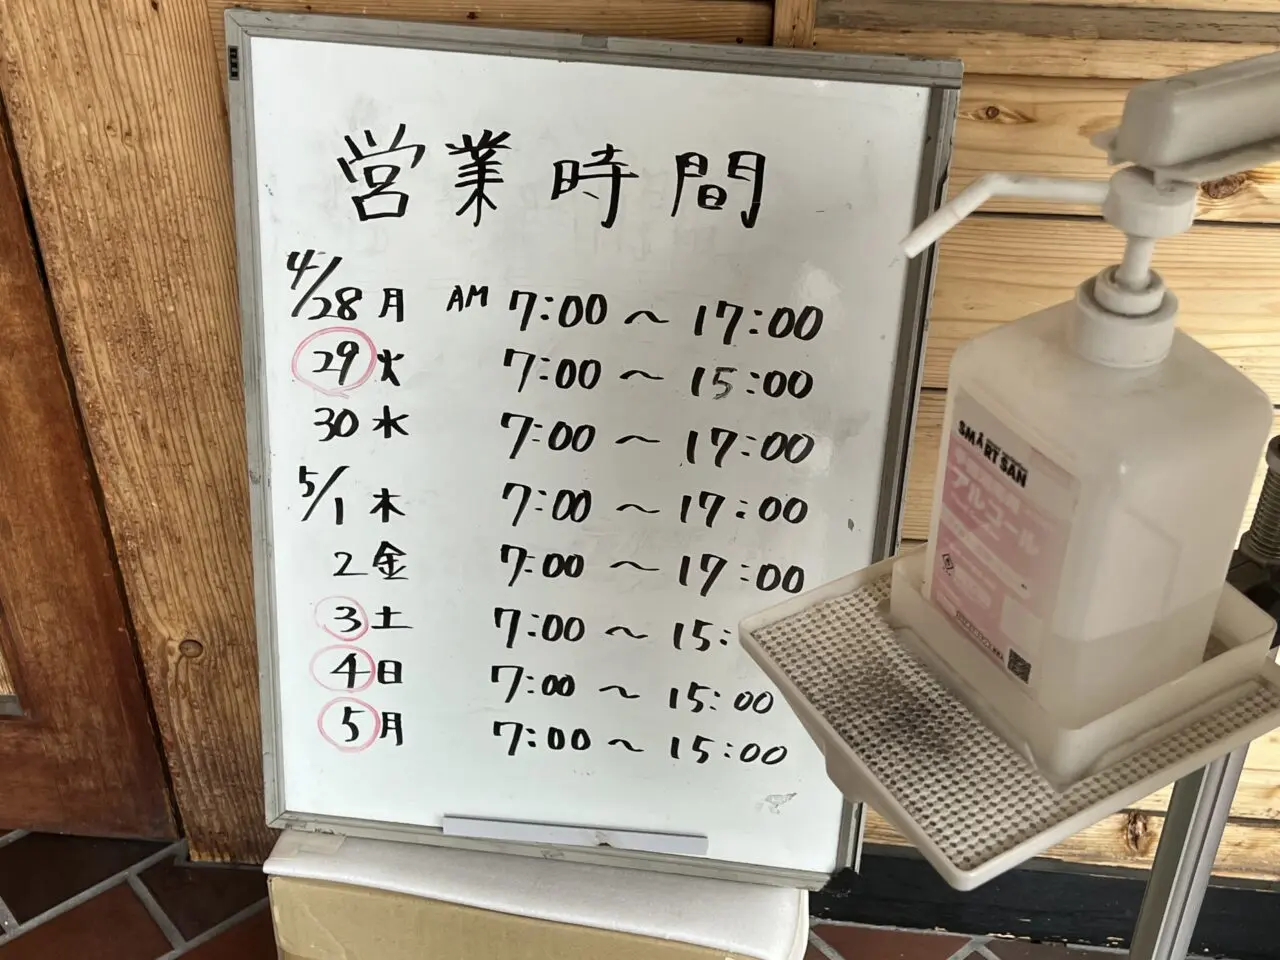 営業時間
4/28月 AM 7:00〜17:00
29火 7:00〜15:00
30水 7:00〜17:00
5/1木 7:00〜17:00
2金 7:00〜17:00
3土 7:00〜15:
4日 7:00〜15:00
5月 7:00〜15:00
SMART SAN
アルコール